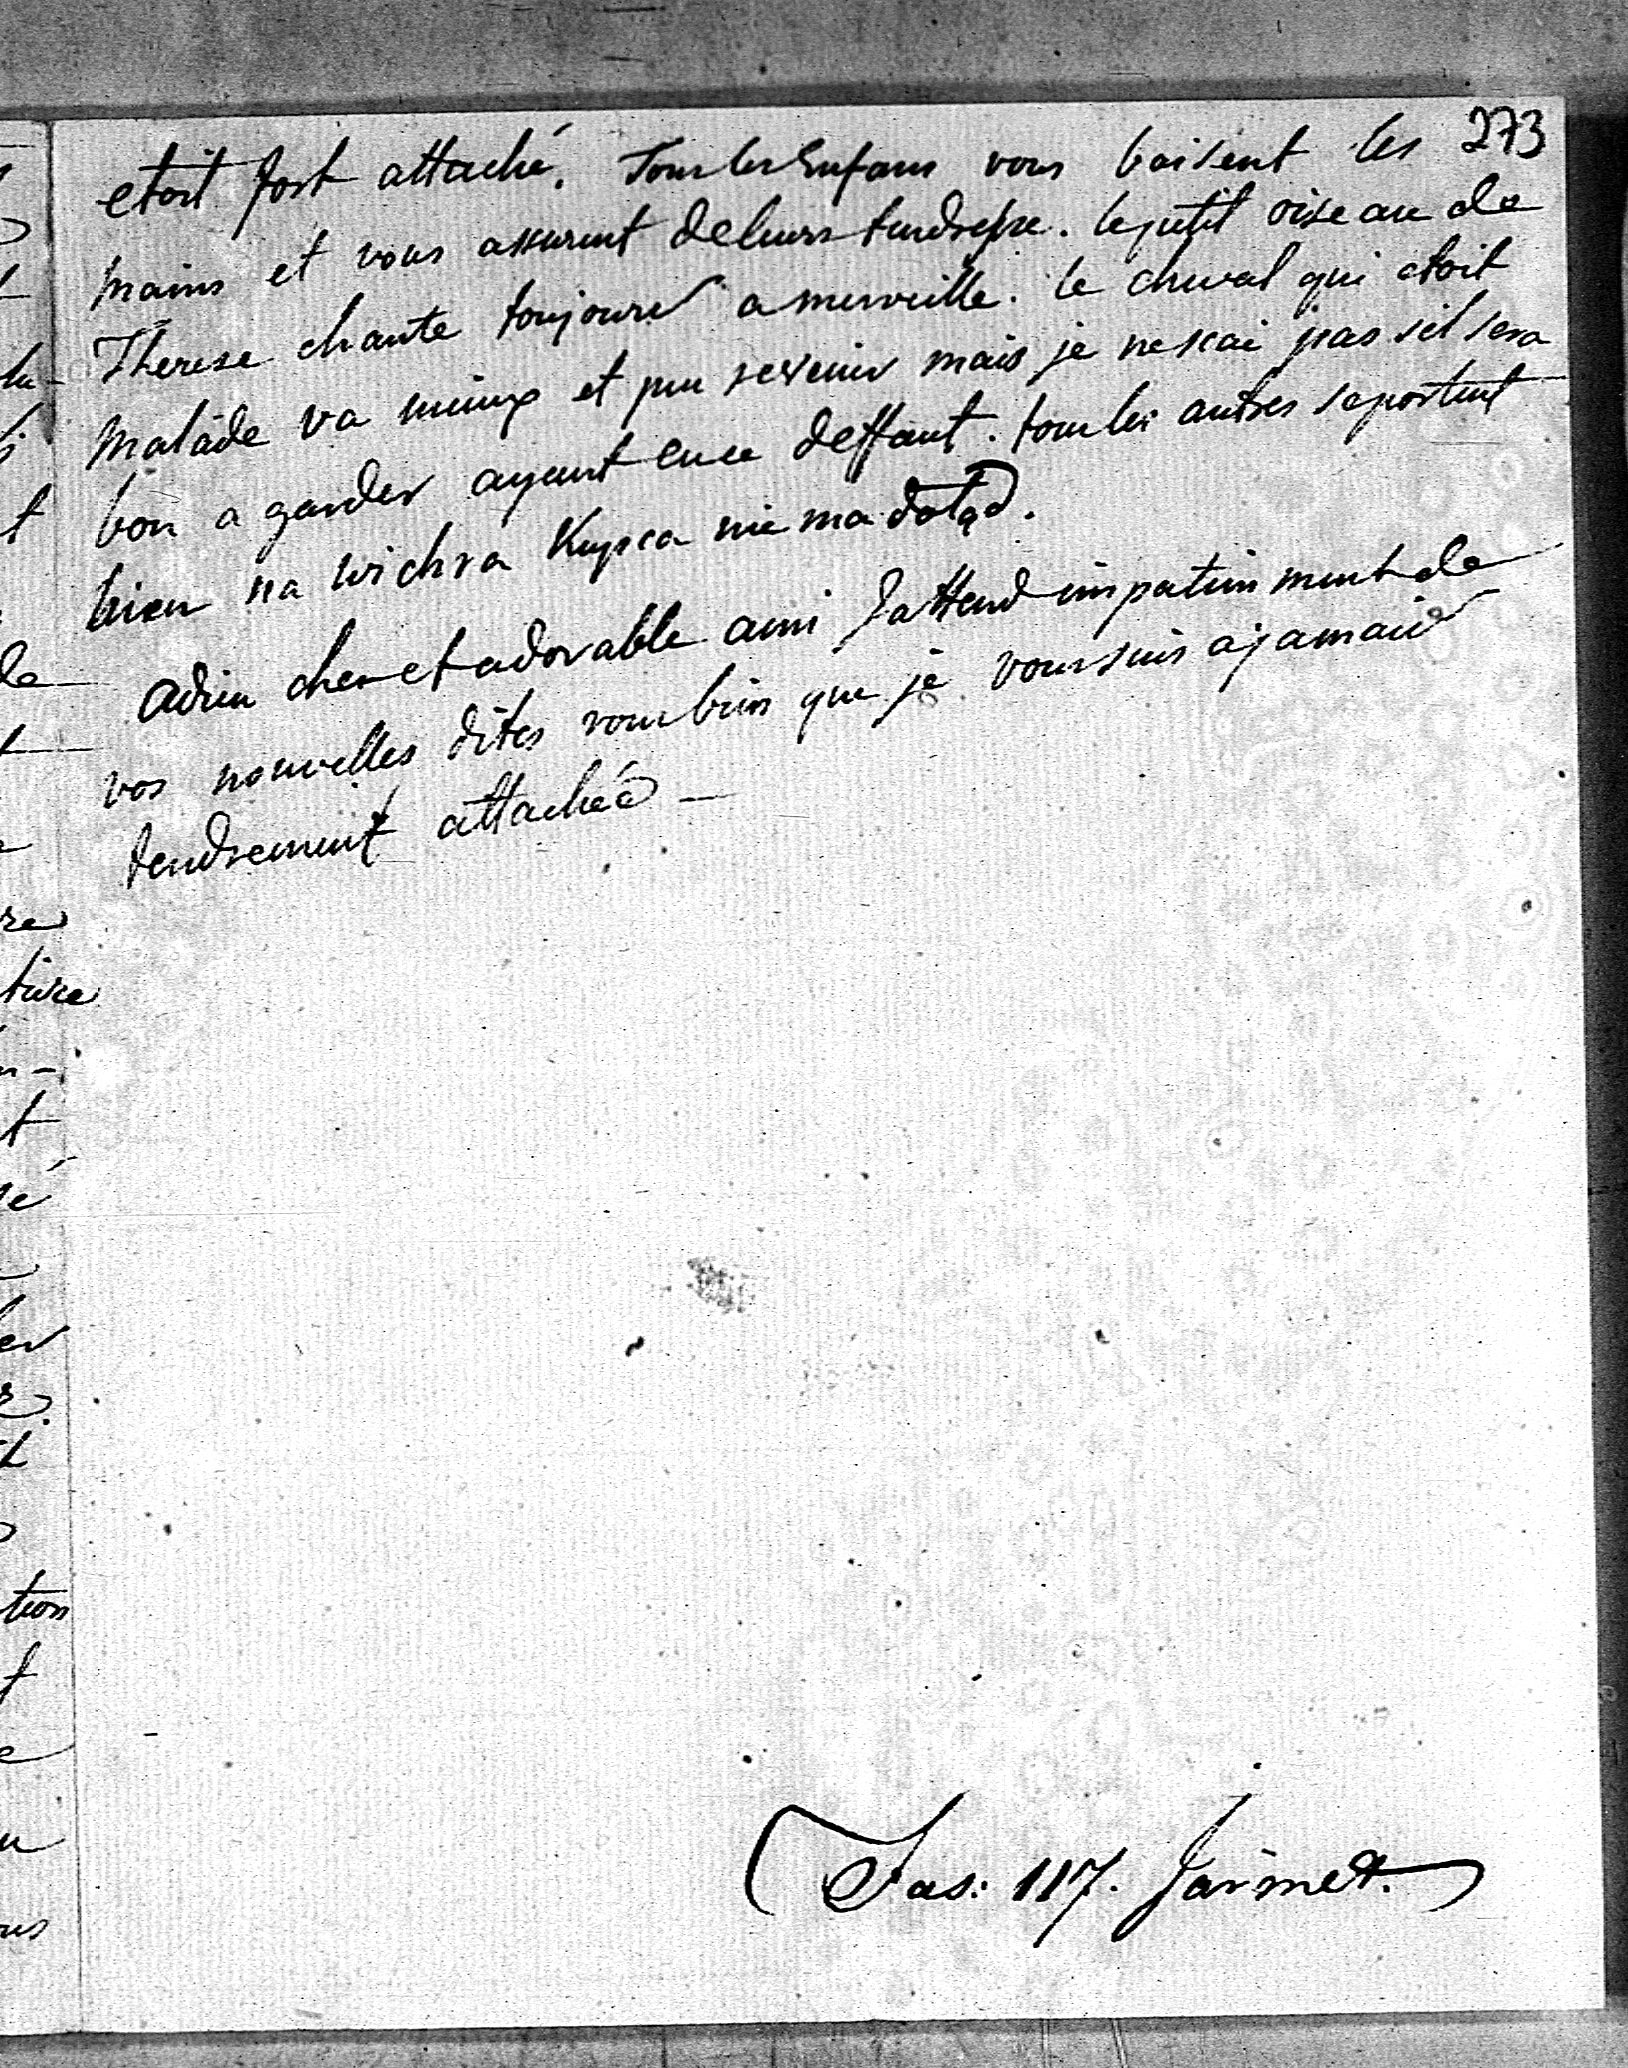 273
etoit fort attaché. Tous les Enfans vous baisent les
mains et vous assurent de leurs tendresse. le petit oiseau de
Therese chante toujours a merveille. le cheval qui etoit
malade va mieux et peu revenir mais je ne scai pas sil sera
bon a garder ayant euce deffaut. tous les autres se portent
bien na wichra Kupca nie ma dotąd.
adieu cher et adorable ami Jattend impatiemment de
vos nouvelles dites vous bien que je vous suis a jamais
tendrement attachée —
Fas: 117. Jarmet.